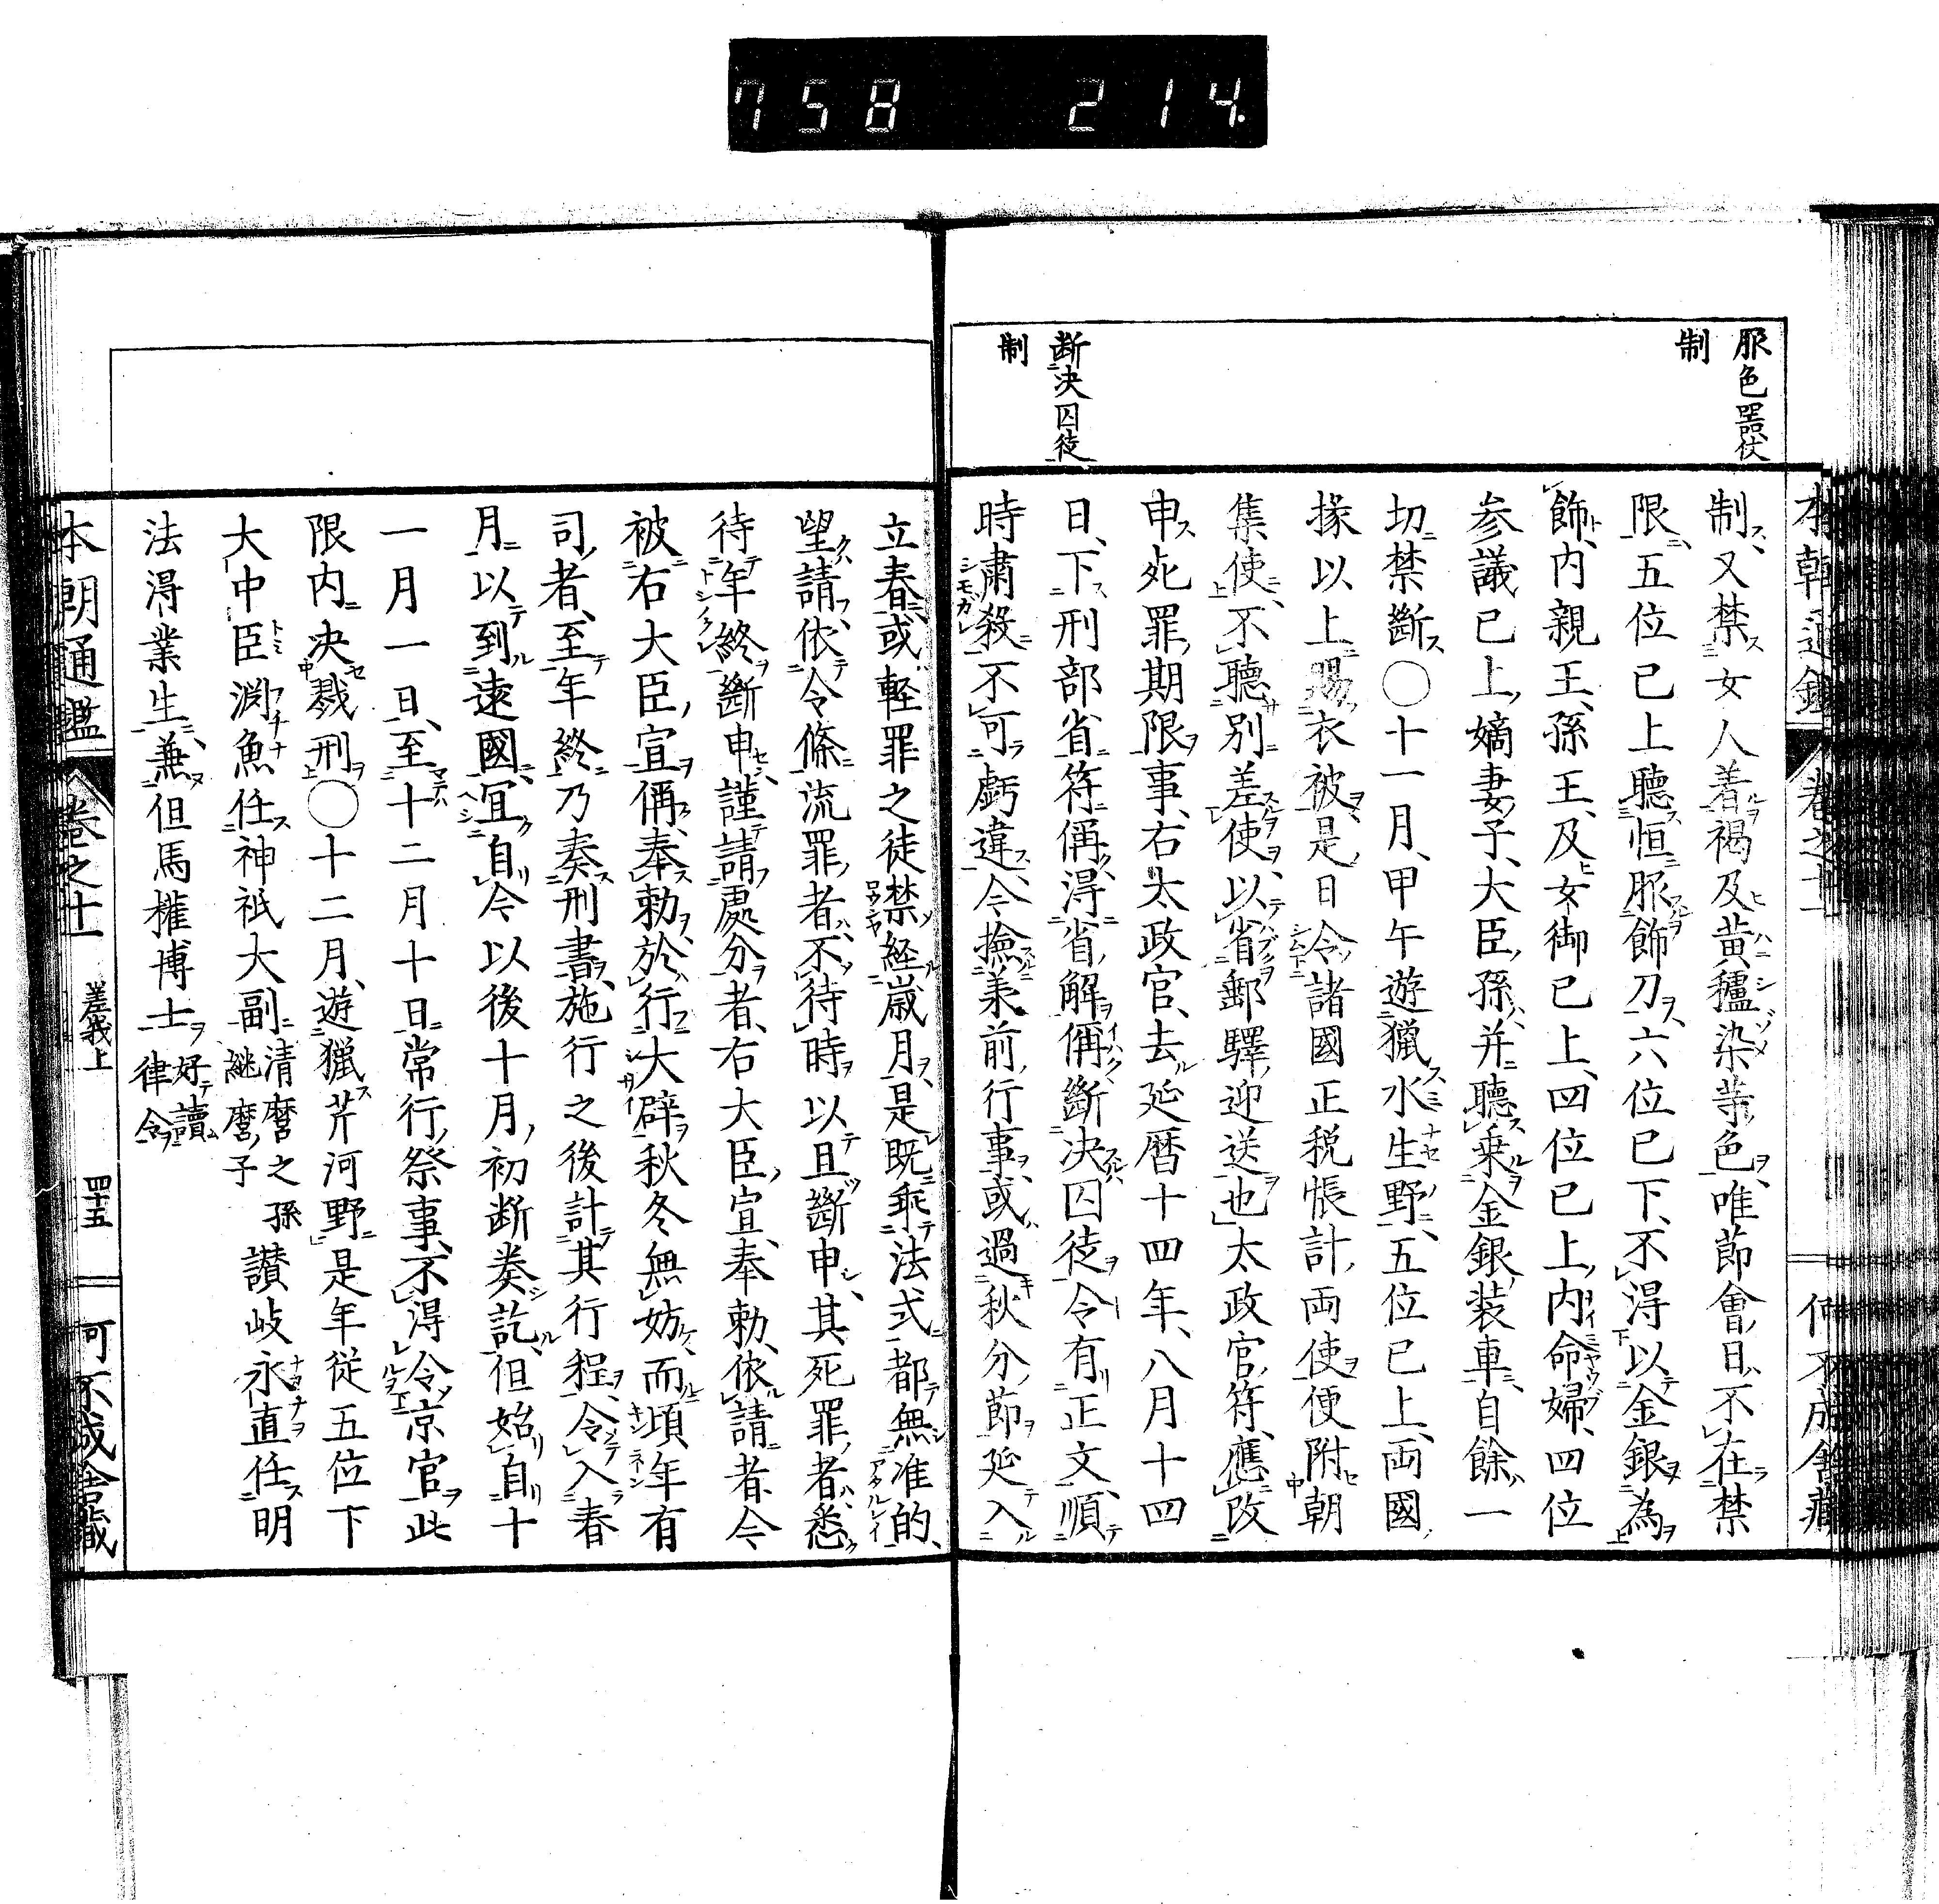 758 214.
服色器仗
制
断决囚徒
制
制又禁女人着褐及黄櫨染等色唯節會日不在禁
限五位已上聽恒服飾刀六位已下不得以金銀為
飾内親王孫王及女御已上四位已上内命婦四位
参議已上嫡妻子大臣孫并聽乗金銀装車自餘一
切禁斷〇十一月甲午遊獵水生野五位已上両國
掾以上賜衣被是日令諸國正税帳計両使便附朝
集使不聽別差使以省郵驛迎送也太政官符應改
申死罪期限事右太政官去延暦十四年八月十四
日下刑部省符偁得省解偁斷决囚徒令有正文順
時肅殺不可虧違今撿案前行事或過秋分節延入
立春或軽罪之徒禁経歳月是既乖法式都無准的
望請依令條流罪者不待時以且斷申其死罪者悉
待年終斷申謹請處分者右大臣宣奉勅依請者今
被右大臣宣偁奉勅於行大辟秋冬無妨而頃年有
司者至年終乃奏刑書施行之後計其行程令入春
月以到遠國宜自今以後十月初断奏訖但始自十
一月一日至十二月十日常行祭事不得令京官此
限内决戮刑〇十二月遊獵芹河野是年従五位下
大中臣渕魚任神祇大副清麿之孫
継麿子讃岐永直任明
法得業生兼但馬權博士好讀
律令
本朝通鑑 巻之廿 嵯峨上 四十五 何不成舎蔵